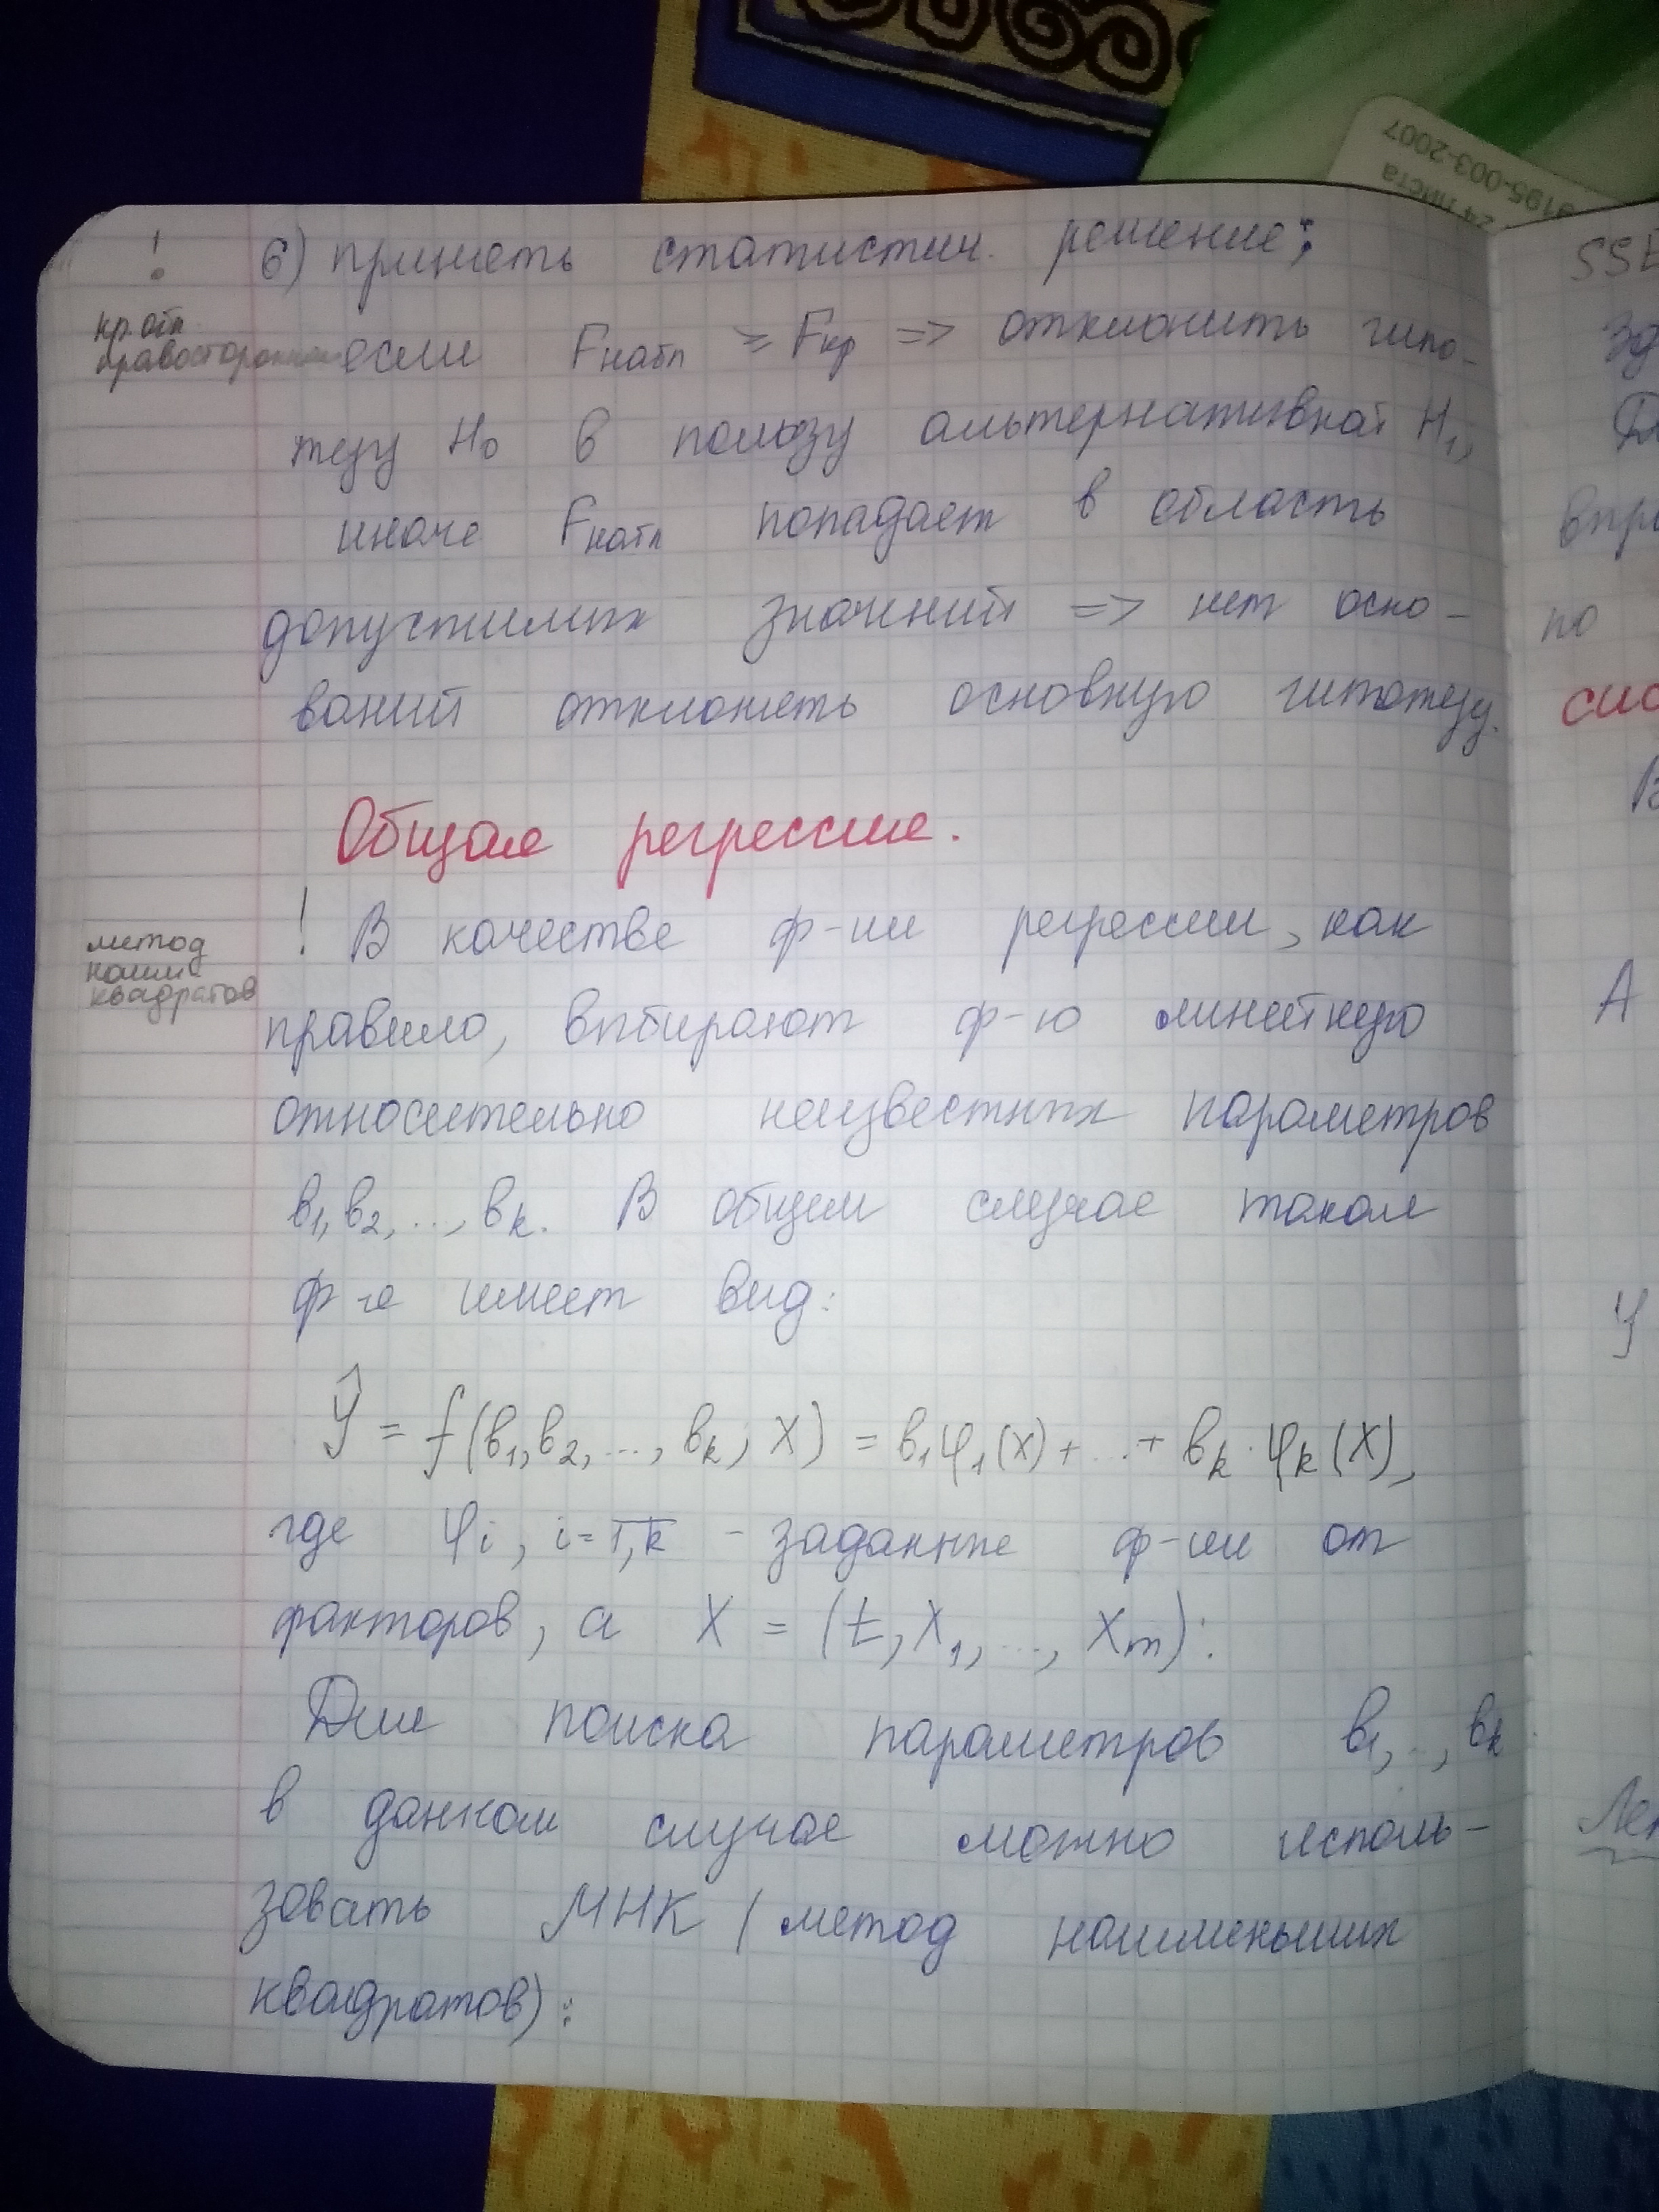 24 листа
9195-003-2007
!
6) принять статистич. решение;
кр. обл.
правосторонняя
если Fнабл ≥ Fкр => отклонить гипо-
тезу H₀ в пользу альтернативной H₁,
иначе Fнабл попадает в область
допустимых значений => нет осно-
ваний отклонять основную гипотезу.
Общая регрессия.
метод
наим
квадратов
! В качестве ф-ии регрессии, как
правило, выбирают ф-ю линейную
относительно неизвестных параметров
в₁, в₂, ..., вk. В общем случае такая
ф-я имеет вид:
Ŷ = f(в₁, в₂, ..., вk, X) = в₁φ₁(X) + ... + вk·φk(X),
где φi, i=1,k - заданные ф-ии от
факторов, а X = (t, X₁, ..., Xm):
Для поиска параметров в₁, .., вk
в данном случае можно исполь-
зовать МНК (метод наименьших
квадратов):
по
А